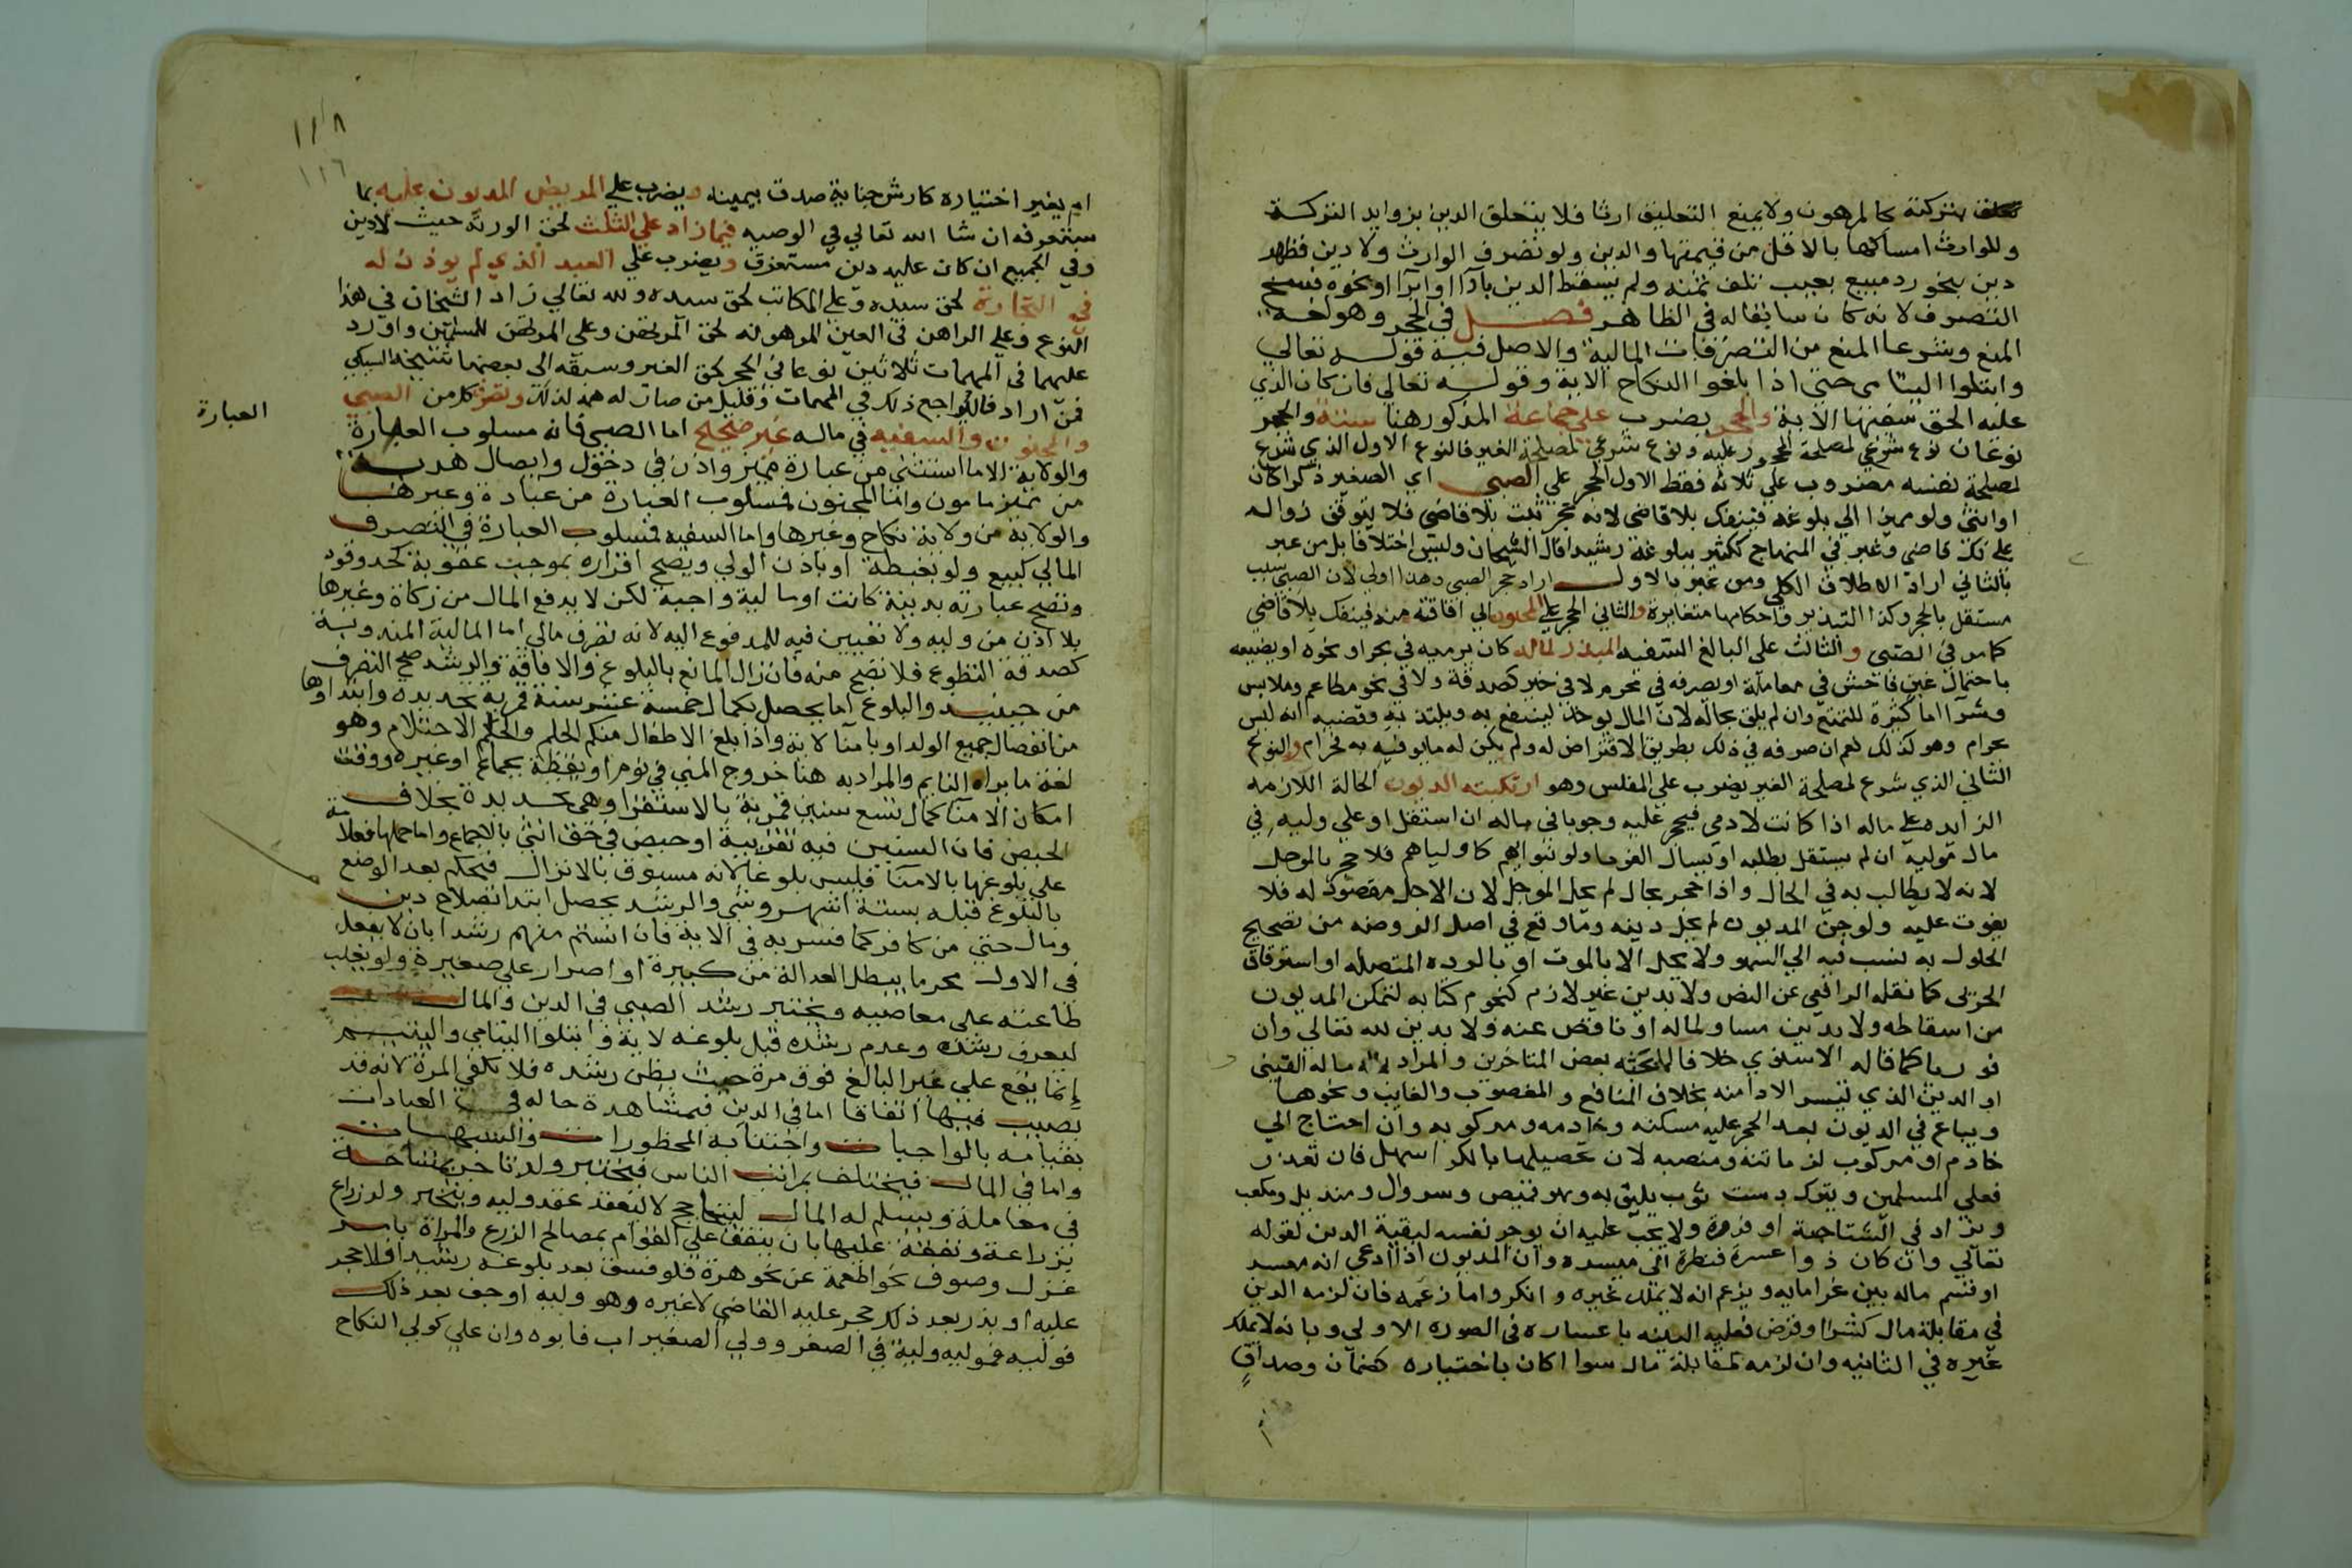 تعلق بتركته كالمرهون ولا يمنع التعليق ارثا فلا يتعلق الدين بزوايد التركة
وللوارث امساكها بالاقل من قيمتها والدين ولو تصرف الوارث ولا دين فظهر
دين بنحو رد مبيع بعيب تلف ثمنه ولم يسقط الدين بادا او ابرا او نحوه فسخ
التصرف لانه كان سايغا له في الظاهر فصل في الحجر وهو لغة
المنع وشرعا المنع من التصرفات المالية والاصل فيه قوله تعالي
وابتلوا اليتامى حتى اذا بلغوا النكاح الاية وقوله تعالي فان كان الذي
عليه الحق سفيها الاية والحجر يضرب على جماعة المذكور هنا ستة والحجر
نوعان نوع شرعي لمصلحة المحجور عليه ونوع شرعي لمصلحة الغير فالنوع الاول الذي شرع
لمصلحة نفسه مضروب على ثلاثة فقط الاول الحجر على الصبي اي الصغير ذكرا كان
او انثى ولو مميزا الي بلوغه فينفك بلا قاضي لانه حجر ثبت بلا قاضي فلا يتوقف زواله
على فك قاضي وعبر في المنهاج ككثير ببلوغه رشيدا قال الشيخان وليس اختلافا بل من عبر
بالثاني اراد الاطلاق الكلي ومن عبر بالاول اراد حجر الصبي وهذا اولي لان الصبي سبب
مستقل بالحجر وكذا التبذير واحكامها متغايرة والثاني الحجر على المجنون الي افاقته منه فينفك بلا قاضي
كما مر في الصبي والثالث على البالغ السفيه المبذر لماله كان يرميه في بحر او نحوه او يضيعه
باحتمال غبن فاحش في معاملة او يصرفه في محرم لا في خير كصدقة ولا في نحو مطاعم وملابس
وشرا اما كثيرة للتمتع وان لم يلق بحاله لان المال يوخذ لينتفع به ويلتذ به وقضيه انه ليس
بحرام وهو كذلك نعم ان صرفه في ذلك بطريق الاقتراض له ولم يكن له ما يوفيه به فحرام والنوع
الثاني الذي شرع لمصلحة الغير يضرب على المفلس وهو ارتكبته الديون الحالة اللازمه
الزايده على ماله اذا كانت لادمي فيحجر عليه وجوبا في ماله ان استقل او على وليه في
مال موليه ان لم يستقل بطلبه او بسال الغرما ولو بنوابهم كاوليايهم فلا حجر بالموجل
لانه لا يطالب به في الحال واذا حجر بحال لم يحل الموجل لان الاجل مقصود له فلا
يفوت عليه ولو جن المديون لم يحل دينه وما وقع في اصل الروضه من تصحيح
الحلول به نسب فيه الي السهو ولا يحل الا بالموت او بالرده المتصله او استرقاق
الحربى كما نقله الرافعي عن النص ولا بدين غير لازم كنجوم كتابه لتمكن المديون
من اسقاطه ولا بدين مساو لماله او ناقص عنه ولا بدين لله تعالي وان
فوريا كما قاله الاسنوي خلافا لما بحثه بعض المتاخرين والمراد بماله ماله العيني
او الدين الذي تيسر الادا منه بخلاف المنافع والمغصوب والغايب ونحوها
ويباع في الديون بعد الحجر عليه مسكنه وخادمه ومركوبه وان احتاج الي
خادم او مركوب لزمانته ومنصبه لان تحصيلها بالكرا اسهل فان تعذر
فعلى المسلمين ويترك دست ثوب يليق به وهو قميص وسروال ومنديل ومكعب
ويزاد في الشتا جبة او فروة ولا يجب عليه ان يوجر نفسه لبقية الدين لقوله
تعالي وان كان ذو عسرة فنظرة الى ميسره وان المديون اذا ادعي انه معسر
او قسم ماله بين غرمايه وزعم انه لا يملك غيره وانكروا ما زعمه فان لزمه الدين
في مقابلة مال كشرا وقرض فعليه البينه باعساره في الصوره الاولى وبانه لا يملك
غيره في الثانيه وان لزمه لا في مقابلة مال سوا اكان باختياره كضمان وصداق
١١٨
١١٦
ام بغير اختياره كارش جناية صدق بيمينه ويضرب على المريض المديون عليه بما
ستعرفه ان شا الله تعالي في الوصيه فيما زاد على الثلث لحق الورثة حيث لا دين
وفي الجميع ان كان عليه دين مستغرق ويضرب على العبد الذي لم يوذن له
في التجارة لحق سيده وعلى المكاتب لحق سيده ولله تعالي زاد الشيخان في هذا
النوع وعلى الراهن في العين المرهونه لحق المرتهن وعلى المرتد لحق المسلمين واورد
عليهما في المهمات ثلاثين نوعا فى الحجر لحق الغير وسبقه الى بعضها شيخه السبكي
فمن اراد فاليراجع ذلك في المهمات وقليل من صارت له همة لذلك وتصرف كل من الصبي
والمجنون والسفيه في ماله غير صحيح اما الصبي فانه مسلوب العبارة
العبارة
والولاية الا ما استثني من عبارة مميز واذن في دخول وايصال هدية
من مميز مامون واما المجنون فمسلوب العبارة من عبادة وغيرها
والولاية من ولاية نكاح وغيرها واما السفيه فمسلوب العبارة في التصرف
المالي كبيع ولو بغبطة او باذن الولي ويصح اقراره بموجب عقوبة كحد وقود
وتصح عبادته بدنية كانت او مالية واجبة لكن لا يدفع المال من زكاة وغيرها
بلا اذن من وليه ولا تعيين فيه للمدفوع اليه لانه تصرف مالي اما المالية المندوبة
كصدقة التطوع فلا تصح منه فان زال المانع بالبلوغ والافاقة والرشد صح التصرف
من حينيذ والبلوغ اما يحصل بكمال خمسة عشر سنة قمرية تحديده وابتداوها
من انفصال جميع الولد او بامنا لاية واذا بلغ الاطفال منكم الحلم والحلم الاحتلام وهو
لغة ما يراه النايم والمراد به هنا خروج المني في نوم او يقظة بجماع او غيره ووقت
امكان الامنا كمال تسع سنين قمرية بالاستقرا وهي تحديدة بخلاف
الحيض فان السنين فيه تقريبية او حيض في حق انثى بالاجماع واما حملها فعلامة
على بلوغها بالامنا فليس بلوغا لانه مسبوق بالانزال فيحكم بعد الوضع
بالبلوغ قبله بستة اشهر وشي والرشد يحصل ابتدا بصلاح دين
ومال حتى من كافر كما فسر به في الاية فان انستم منهم رشدا بان لا يفعل
فى الاول محرما يبطل العدالة من كبيرة او اصرار على صغيرة ولو يغلب
طاعته على معاصيه ويختبر رشد الصبي في الدين والمال
ليعرف رشده وعدم رشده قبل بلوغه لاية وابتلوا اليتامى واليتيم
إنما يقع على غير البالغ فوق مرة حيث يظن رشده فلا تكفي المرة لانه قد
يصيب فيها اتفاقا اما في الدين فبمشاهدة حاله في العبادات
بقيامه بالواجبات واجتنابه المحظورات والشبهات
واما في المال فيختلف بمراتب الناس فيختبر ولد تاجر بمشاحة
في معاملة ويسلم له المال ليتماحج لا ليعقد عقد وليه ويختبر ولد زراع
بزراعة ونفقة عليها بان ينفق على القوام بمصالح الزرع والمراة بامر
غزل وصوف نحو اطعمة عن نحو هرة فلو فسق بعد بلوغه رشيدا فلا حجر
عليه او بذر بعد ذلك حجر عليه القاضي لا غيره وهو وليه او جن بعد ذلك
فوليه وليه في الصغر وولي الصغير اب فابوه وان علي كولي النكاح